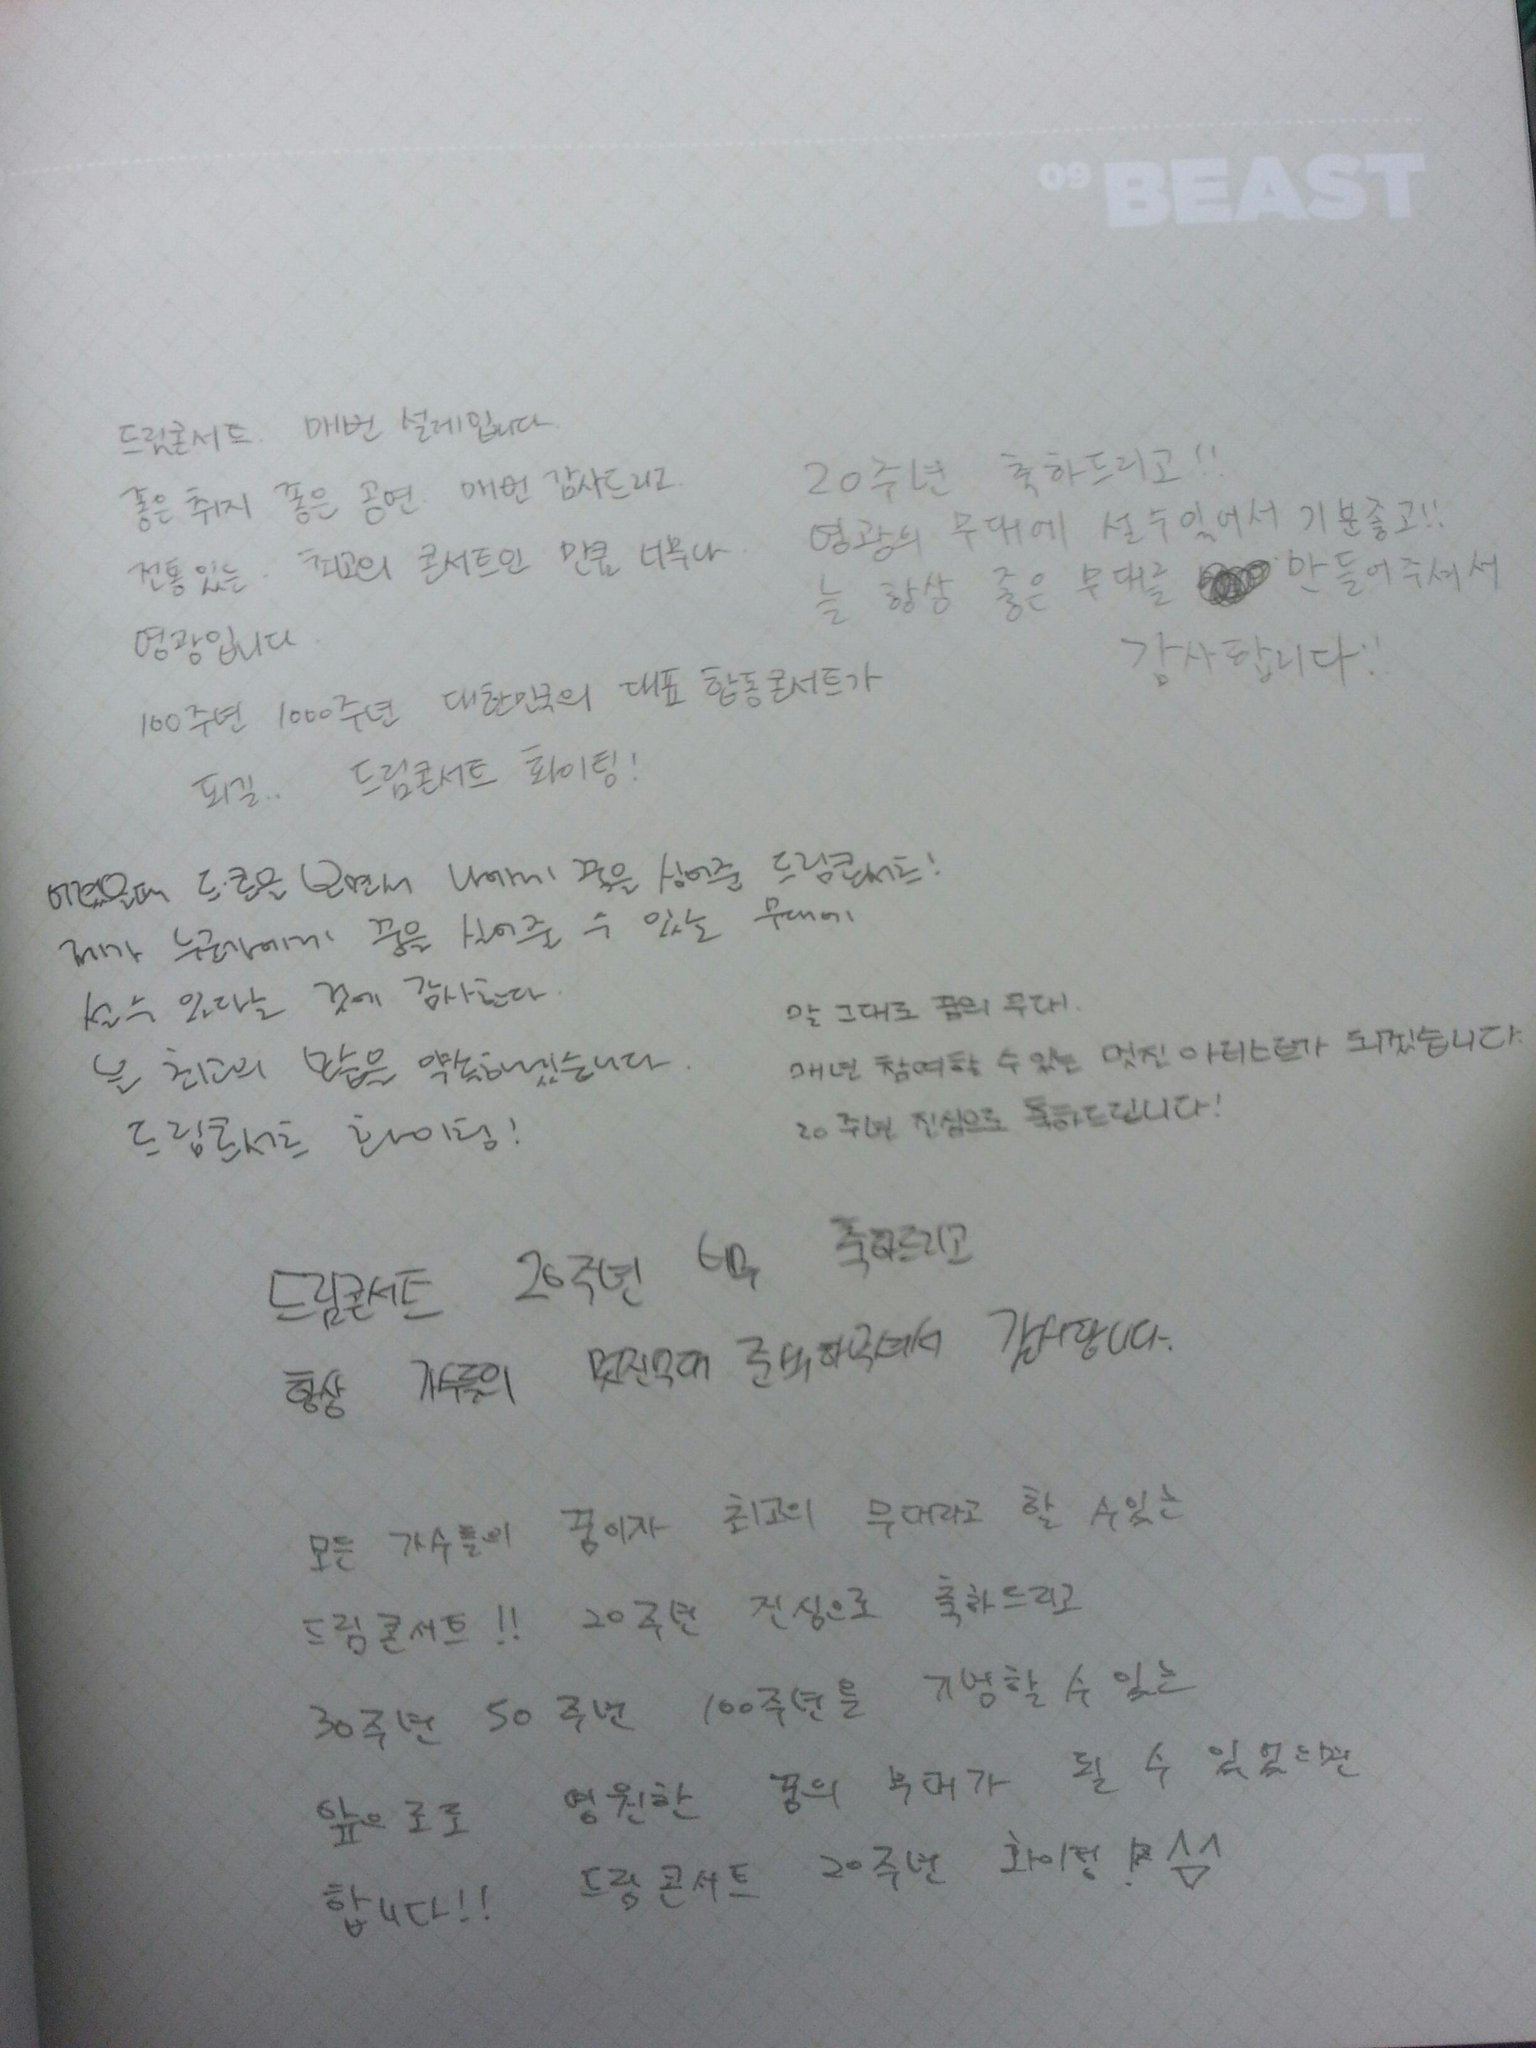 09 BEAST
드림콘서트. 매번 설레입니다.
좋은취지 좋은 공연. 매번 감사드리고.
전통있는. 최고의 콘서트인 만큼 너무나
영광입니다.
100주년 1000주년 대한민국의 대표 합동콘서트가
되길.. 드림콘서트 화이팅!
20주년 축하드리고!!
영광의 무대에 설수있어서 기분좋고!!
늘 항상 좋은 무대를 만들어주셔서
감사합니다!!
어렸을때 드.콘을 보면서 나에게 꿈을 심어준 드림콘서트!
제가 누군가에게 꿈을 심어줄 수 있는 무대에
설 수 있다는 것에 감사한다.
늘 최고의 모습을 약속하겠습니다.
드림콘서트 화이팅!
말 그대로 꿈의 무대.
매년 참여할 수 있는 멋진 아티스트가 되겠습니다.
20주년 진심으로 축하드립니다!
드림콘서트 20주년 너무 축하드리고
항상 가수들의 멋진무대 준비해주셔서 감사합니다.
모든 가수들의 꿈이자 최고의 무대라고 할 수있는
드림콘서트!! 20주년 진심으로 축하드리고
30주년 50주년 100주년를 기념할 수 있는
앞으로도 영원한 꿈의 무대가 될 수 있었으면
합니다!! 드림콘서트 20주년 화이팅!